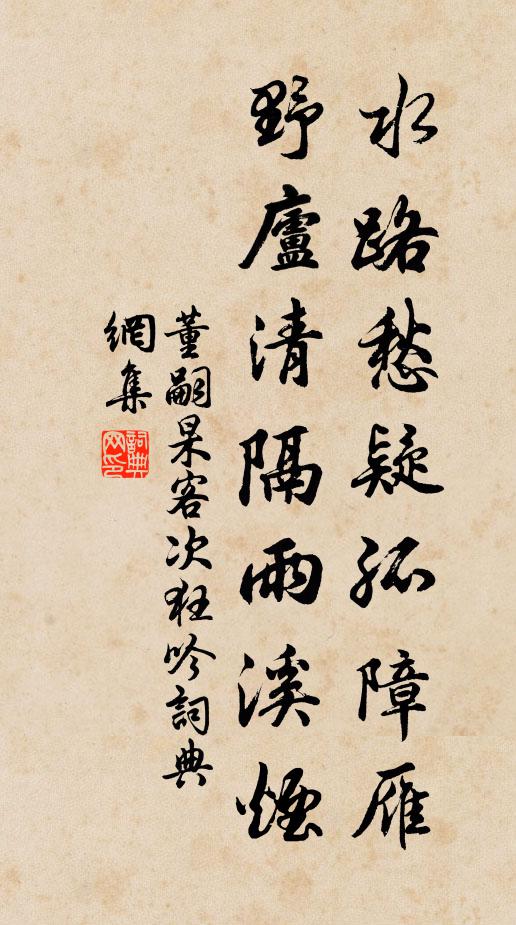 水路愁疑孤障雁
野廬清隔雨溪煙
董嗣杲客次狂吟詞典
網集
詞典網印